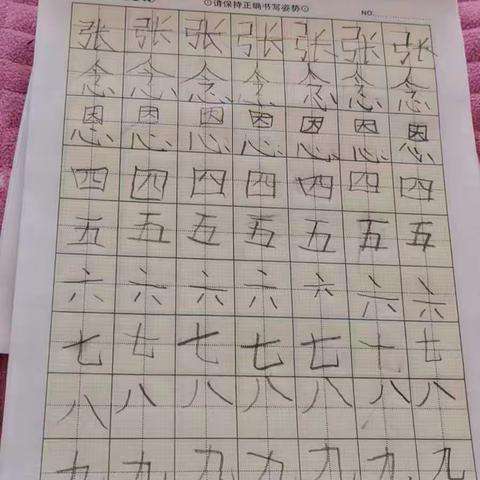 ⊙请保持正确书写姿势⊙ NO:
张张张张张张张
念念念念念念念
恩恩恩恩恩恩恩
四四四四四四四
五五五五五五五
六六六六六六六
七七七七七七七
八八八八八八八
九九九九九九九